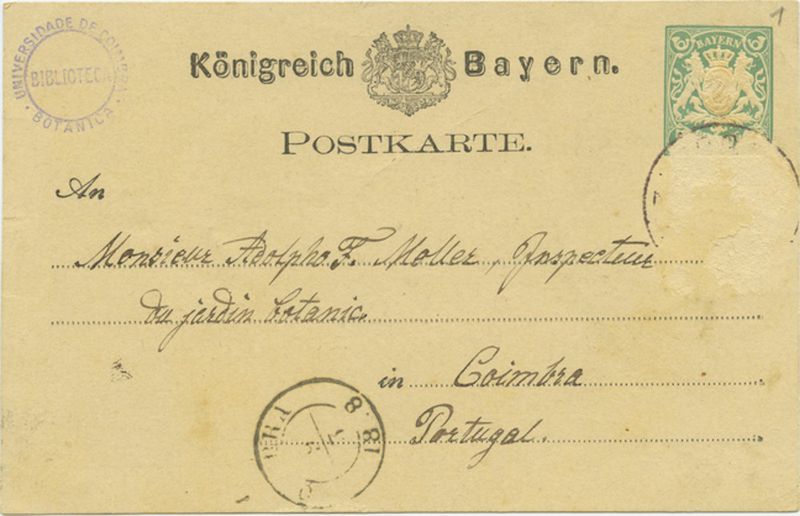 1
UNIVERSIDADE DE COIMBRA
BIBLIOTECA
BOTANICA
BAYERN
Königreich Bayern.
POSTKARTE.
An
Monsieur Adolpho F. Moller, Inspecteur
du jardin botanic.
in Coimbra
Portugal.